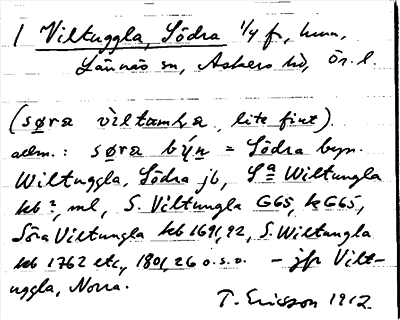 1 Viltuggla, Södra 1/4 fr, hmn,
Lännäs sn, Askers hd, Ör. l.
(søra viltamla, lite fint).
adm.: søra býn = Södra byn.
Wiltuggla, Södra jb, Sª Wiltungla
kb², ml, S. Viltungla G65, kG65,
Söra Viltungla kb 1691, 92, S. Wiltungla
kb 1762 etc, 1801, 26 o.s.v. – jfr Vilt-
uggla, Norra.
T. Ericsson 1912.